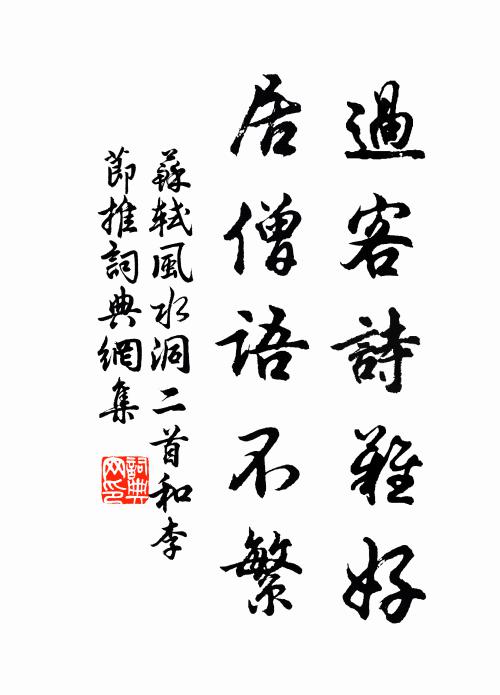 過客詩難好
居僧語不繁
蘇軾風水洞二首和李
節推詞典網集
詞典
网印